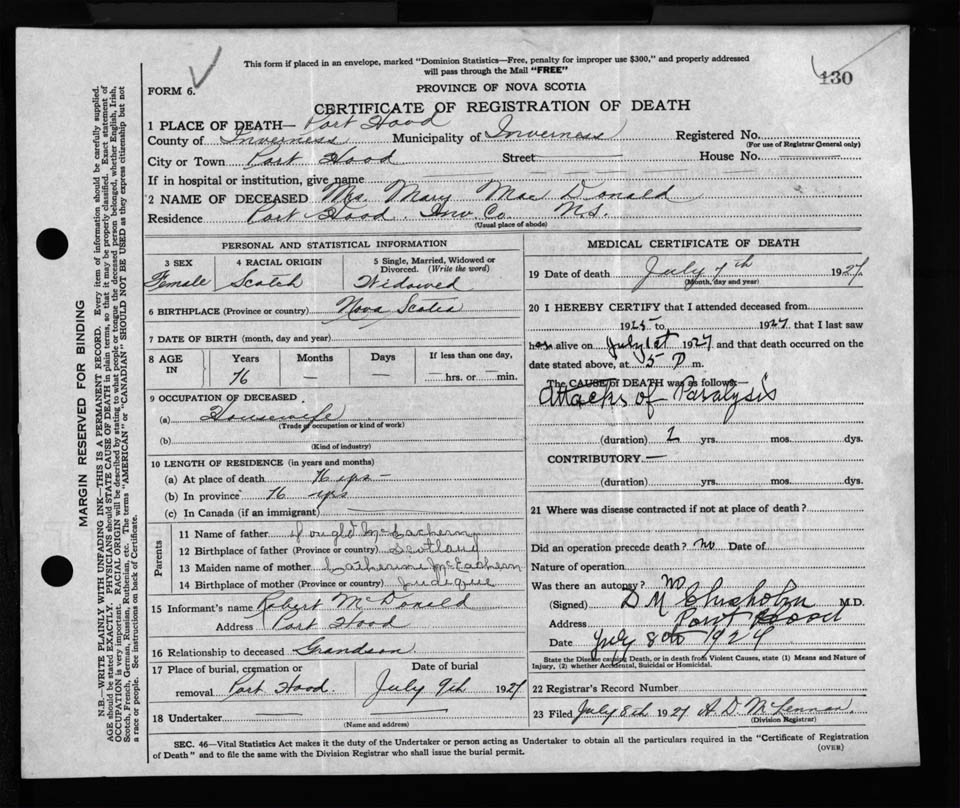 This form if placed in an envelope, marked "Dominion Statistics—Free, penalty for improper use $300," and properly addressed
will pass through the Mail "FREE"
130
FORM 6.
PROVINCE OF NOVA SCOTIA
CERTIFICATE OF REGISTRATION OF DEATH
1 PLACE OF DEATH— Port Hood
County of Inverness Municipality of Inverness Registered No.
(For use of Registrar General only)
City or Town Port Hood Street — House No. —
If in hospital or institution, give name
2 NAME OF DECEASED Mrs. Mary Mac Donald
Residence Port Hood Inv. Co. N.S.
(Usual place of abode)
PERSONAL AND STATISTICAL INFORMATION
3 SEX 4 RACIAL ORIGIN 5 Single, Married, Widowed or Divorced. (Write the word)
Female Scotch Widowed
6 BIRTHPLACE (Province or country) Nova Scotia
7 DATE OF BIRTH (month, day and year)
8 AGE IN Years Months Days If less than one day,
76 — — hrs. or — min.
9 OCCUPATION OF DECEASED
(a) Housewife
(Trade, occupation or kind of work)
(b)
(Kind of industry)
10 LENGTH OF RESIDENCE (in years and months)
(a) At place of death 76 yrs —
(b) In province 76 yrs
(c) In Canada (if an immigrant) —
Parents
11 Name of father
12 Birthplace of father (Province or country) Scotland
13 Maiden name of mother Catherine McEachern
14 Birthplace of mother (Province or country) Judique
15 Informant's name Robert McDonald
Address Port Hood
16 Relationship to deceased Grandson
17 Place of burial, cremation or removal Port Hood. Date of burial July 9th 1927
18 Undertaker —
(Name and address)
MEDICAL CERTIFICATE OF DEATH
19 Date of death July 7th 1927
(Month, day and year)
20 I HEREBY CERTIFY that I attended deceased from
1925 to 1927 that I last saw
h alive on July 1st 1927 and that death occurred on the
date stated above, at 5 P m.
The CAUSE of DEATH was as follows:—
Attacks of Paralysis
(duration) 2 yrs. mos. dys.
CONTRIBUTORY —
(duration) yrs. mos. dys.
21 Where was disease contracted if not at place of death?
Did an operation precede death? no Date of
Nature of operation
Was there an autopsy? no
(Signed) D M Chisholm M.D.
Address Port Hood
Date July 8th 1927
State the Disease causing Death, or in death from Violent Causes, state (1) Means and Nature of
Injury, (2) whether Accidental, Suicidal or Homicidal.
22 Registrar's Record Number
23 Filed July 8th 1927 A. D. McLennan.
(Division Registrar)
SEC. 46—Vital Statistics Act makes it the duty of the Undertaker or person acting as Undertaker to obtain all the particulars required in the "Certificate of Registration
of Death" and to file the same with the Division Registrar who shall issue the burial permit.
(OVER)
MARGIN RESERVED FOR BINDING
N.B.—WRITE PLAINLY WITH UNFADING INK—THIS IS A PERMANENT RECORD. Every item of information should be carefully supplied.
AGE should be stated EXACTLY. PHYSICIANS should STATE CAUSE OF DEATH in plain terms, so that it may be properly classified. Exact statement of
OCCUPATION is very important. RACIAL ORIGIN will be described by stating to what people or tongue the deceased person belonged, whether English, Irish,
Scotch, French, German, Russian, Ruthenian, etc. The terms "AMERICAN" or "CANADIAN" SHOULD NOT BE USED as they express citizenship but not
a race or people. See instructions on back of Certificate.